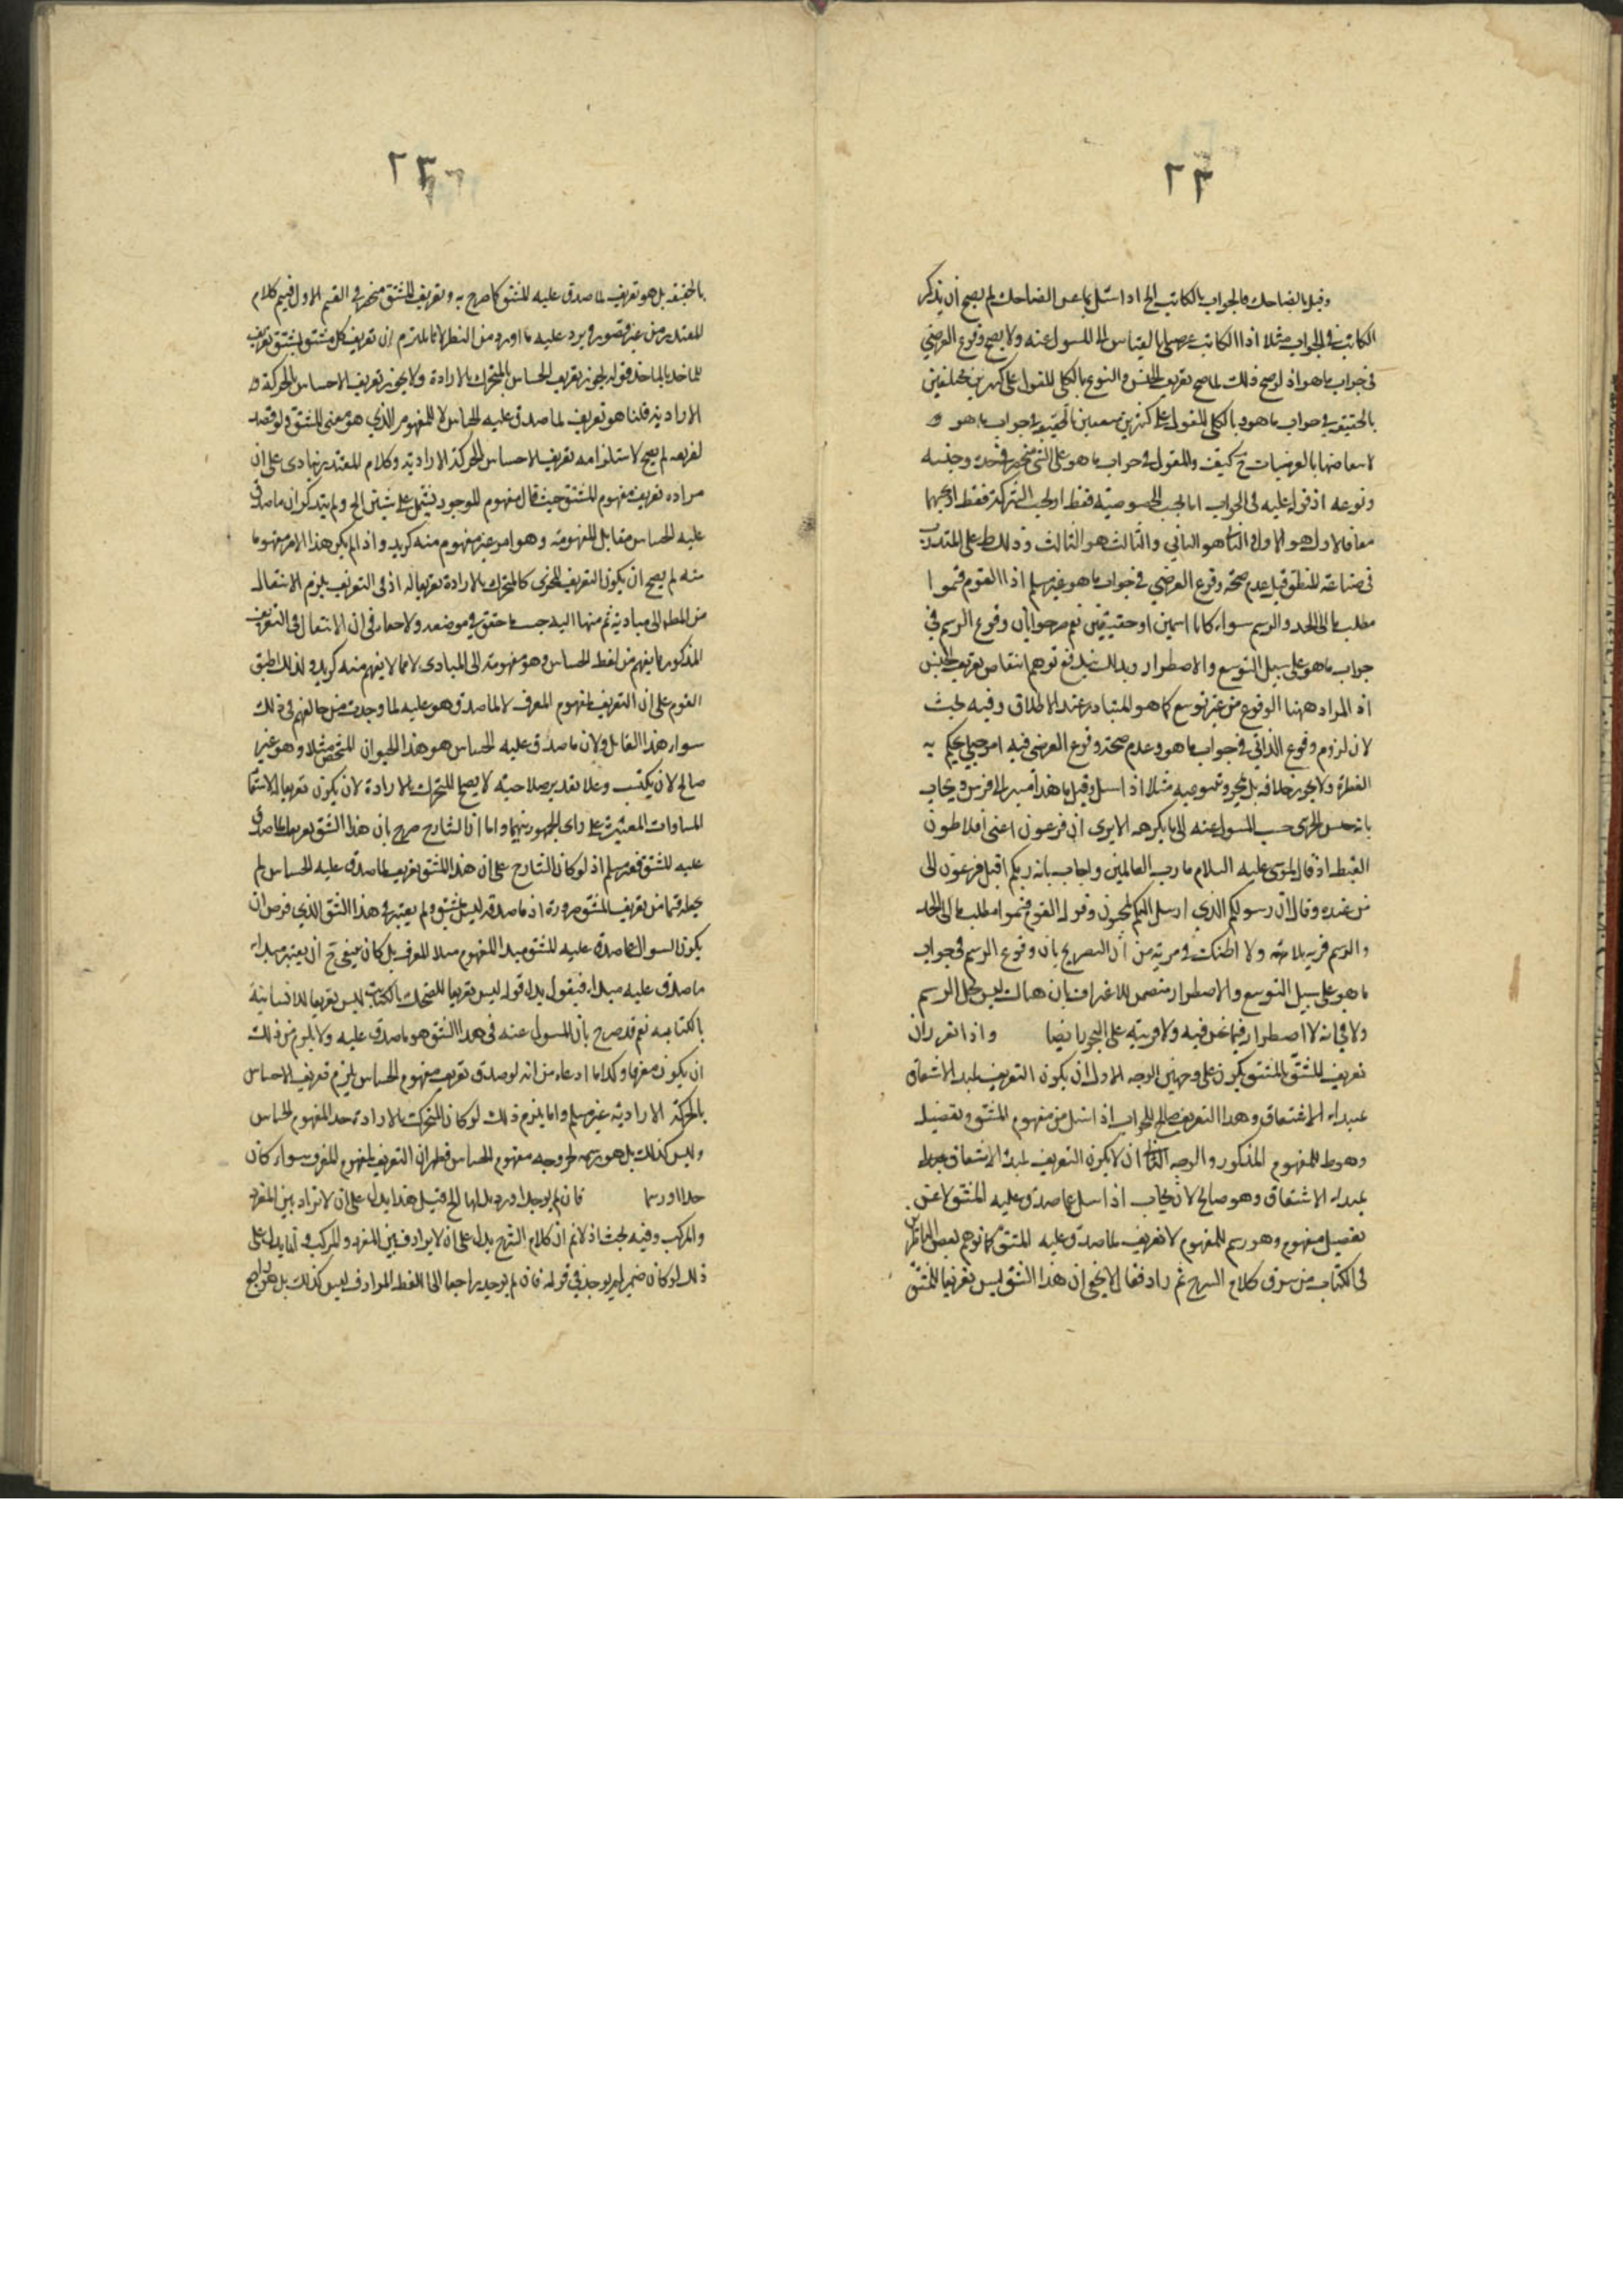 ٢٣
وقيل بالضاحك فالجواب بالكاتب الخ اذا سئل بما عن الضاحك لم يصح ان يذكر
الكاتب في الجواب مثلا اذ الكاتب عرضي بالقياس الى المسول عنه ولا يصح وقوع العرضي
في جواب ما هو اذ لو صح ذلك لما صح تعريف الجنس والنوع بالكلي المقول على كثيرين مختلفين
بالحقيقة في جواب ما هو وبالكلي المقول على كثيرين متفقين بالحقيقة في جواب ما هو و
لانتقاضهما بالعرضيات ح كيف والمقول في جواب ما هو على الشي منحصر في حده وجنسه
ونوعه اذ قوله عليه في الجواب اما بحسب الخصوصية فقط او بحسب الشركة فقط او بحسبهما
معا فالاول هو الاول والثاني هو الثاني والثالث هو الثالث وذلك ظ على المتدرب
في صناعة المنطق قيل عدم صحة وقوع العرضي في جواب ما هو غير مسلم اذ القوم قسموا
مطلب ما الى الحد والرسم سواء كانا اسمين او حقيقيين نعم صرحوا بان وقوع الرسم في
جواب ما هو على سبيل التوسع والاضطرار وبذلك يندفع توهم انتقاض تعريف الجنس
اذ المراد ههنا الوقوع من غير توسع كما هو المتبادر عند الاطلاق وفيه بحث
لان لزوم وقوع الذاتي في جواب ما هو وعدم صحة وقوع العرضي فيه امر جبلي يحكم به
الفطرة ولا يجوز خلافه بل مثلا اذا سئل وقيل ما هذا مشيرا الى فرس ويجاب
بانه حسب المسول عنه الا يرى ان فرعون اعني افلاطون
القبط اذ قال لموسى عليه السلام ما رب العالمين واجاب بانه ربكم اقبل فرعون الى
من عنده وقال ان رسولكم الذي ارسل اليكم لمجنون وقوله القوم قسموا مطلب ما الى الحد
والرسم فرية بلا مرية ولا اظنك في مرية من ان التصريح بان وقوع الرسم في جواب
ما هو على سبيل التوسع والاضطرار متضمن للاعتراف بان هنالك ليس محل الرسم
ولا في انه لا اضطرار فيما نحن فيه ولا قرينة على التجوز ايضا واذا تقرر ان
تعريف المشتق بالمشتق يكون على وجهين الوجه الاول ان يكون التعريف لمبدء الاشتقاق
بمبداء الاشتقاق وهذا التعريف صالح للجواب اذا سئل من مفهوم المشتق وتفصيله
وهو ظ للمفهوم المذكور والوجه الثاني ان لا يكون التعريف لمبدء الاشتقاق
بمبداء الاشتقاق وهو صالح لان يجاب اذا سئل عما صدق عليه المشتق لا عن
تفصيل مفهوم وهو رسم للمفهوم لا تعريف لما صدق عليه المشتق كما توهم بعض الناظرين
في الكتاب من سوق كلام الشرح ثم زاد فقال لا يخفى ان هذا الشق ليس تعريفا للمشتق
٢٣
بالحقيقة بل هو تعريف لما صدق عليه المشتق كما صرح به وتعريف المشتق منحصر في القسم الاول فيتم كلام
المعتذرين من غير قصور ويرد عليه ما اورد من النظر لانا نلتزم ان تعريف كل مشتق بمشتق تعريف
للماخذ بالماخذ قوله يجوز تعريف الحساس بالمتحرك بالارادة ولا يجوز تعريف الاحساس بالحركة و
الارادية قلنا هو تعريف لما صدق عليه الحساس لا للمفهوم الذي هو معنى المشتق ولو قصد
تعريفه لم يصح لاستلزامه تعريف الاحساس بالحركة الارادية وكلام المعتذرين ينادي على ان
مراده تعريف مفهوم المشتق حيث قال مفهوم الموجود يشتمل على شيئين الخ ولم يتذكر ان ما صدق
عليه الحساس مقابل للمفهومة وهو امر غير مفهوم منه كزيد واذا لم يكن هذا الامر مفهوما
منه لم يصح ان يكون التعريف المجزي كالمتحرك بالارادة تعريفا له اذ في التعريف يلزم الانتقال
من المطلوب الى مباديه ثم منها اليه حسب ما حقق في موضعه ولا خفاء في ان الانتقال في التعريف
المذكور مما يفهم من لفظ الحساس وهو مفهومة الى المبادى لا مما لا يفهم منه كزيد ولذلك اطبق
القوم على ان التعريف لمفهوم المعرف لا لما صدق هو عليه لما وجدت من خالفهم في ذلك
سوى هذا القائل ولان ما صدق عليه الحساس هو هذا الحيوان المشخص مثلا وهو غير
صالح لان يكتسب وعلى تقدير صلاحيته لا يصلح المتحرك بالارادة لان يكون تعريفا له لانتفاء
المساوات المعتبرة على راى الجمهور بينهما واما ان الشارح صرح بان هذا الشق تعريف لما صدق
عليه المشتق فغير مسلم اذ لو كان الشارح على ان هذا المشتق تعريف لما صدق عليه الحساس لم
يجعله قسما من تعريف المشتق ضرورة ان ما صدقه ليس بمشتق ولم يعتبر في هذا الشق الذي فرض ان
يكون السوال عما صدق عليه المشتق مبدا المفهوم مبدا للمعرف بل كان ينبغي ح ان يعتبر مبداء
ما صدق عليه مبداء فيقول بدل قوله ليس تعريفا للضحك بالكتابة ليس تعريفا للانسانية
بالكتابة نعم قد صرح بان المسول عنه في هذا الشق هو ما صدق عليه ولا يلزم من ذلك
ان يكون معرفا وكذا ما ادعاه من انه لو صدق تعريف مفهوم الحساس يلزم تعريف الاحساس
بالحركة الارادية غير مسلم وانما يلزم ذلك لو كان المتحرك بالارادة حد المفهوم الحساس
وليس كذلك بل هو رسمه لخروجه مفهوم الحساس فظهر ان التعريف لمفهوم المعرف سواء كان
حدا او رسما فان لم يوجد اورد بدلها الخ قيل هذا يدل على ان لا ترادف بين المفرد
والمركب وفيه بحث اذ لا نم ان كلام الشرح يدل على ان لا يرادف بين المفرد والمركب وانما يدل على
ذلك لو كان ضمير لم يوجد في قوله فان لم يوجد راجعا الى اللفظ المرادف وليس كذلك بل هو راجع